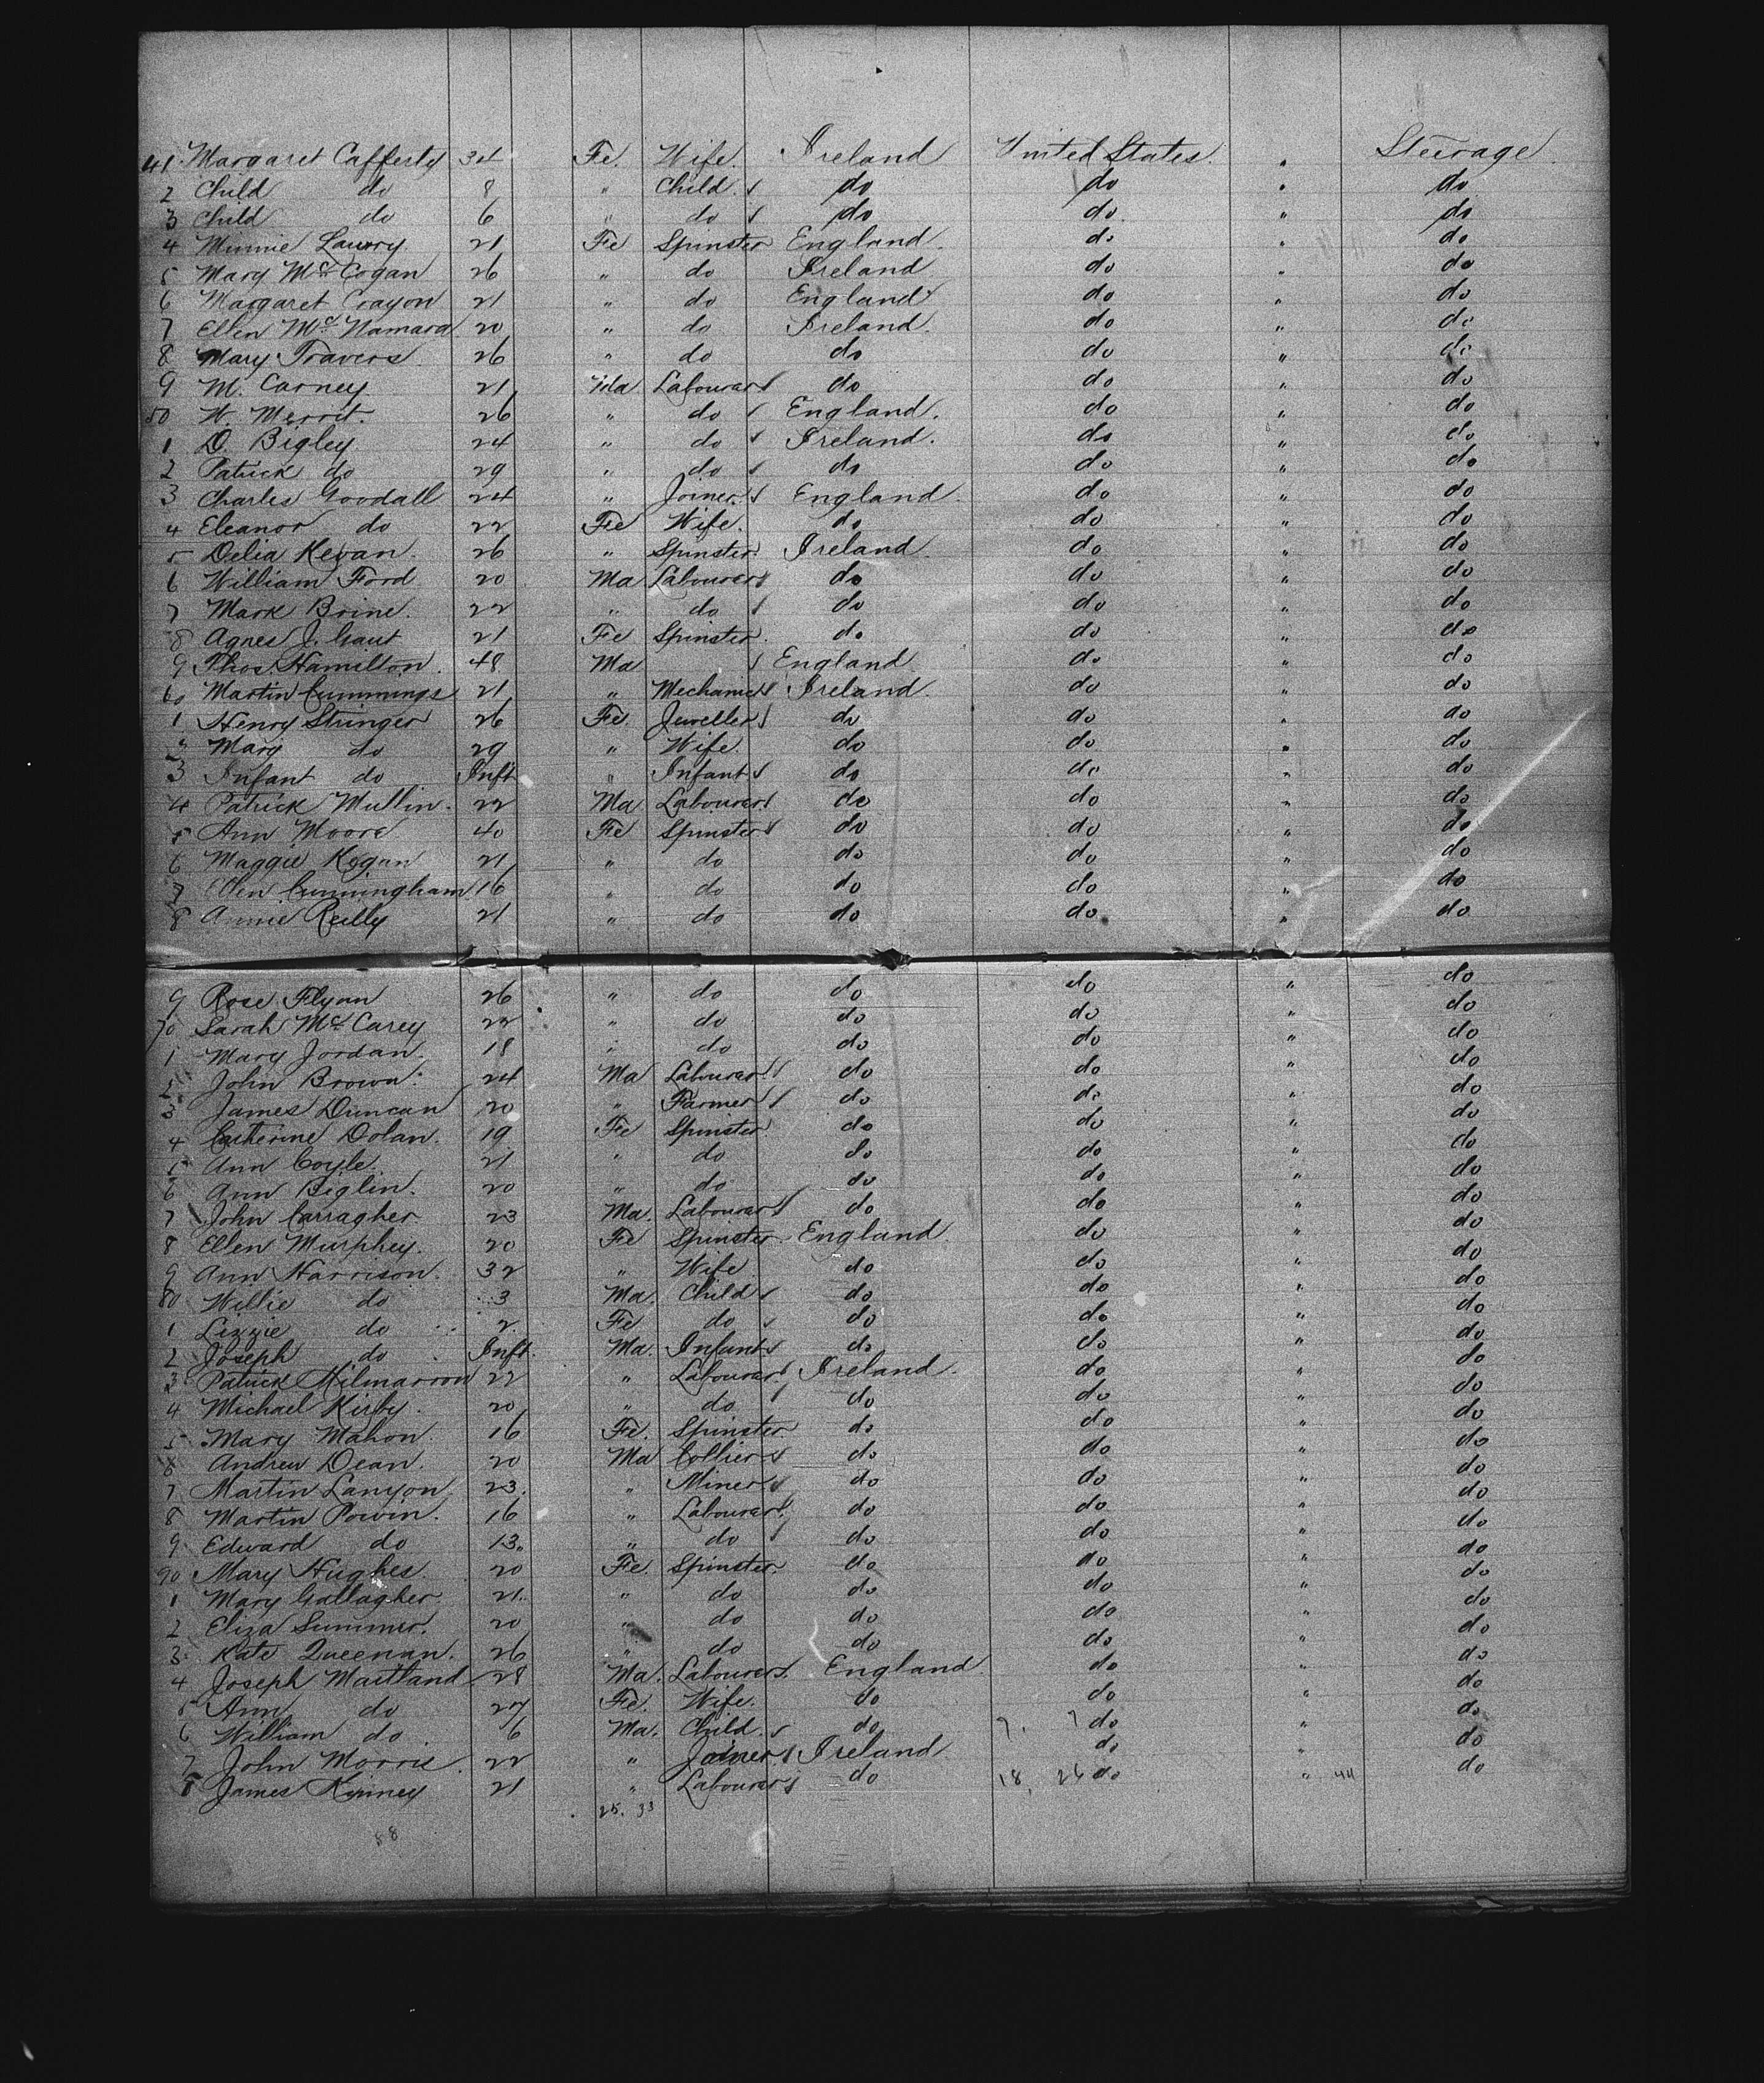 41 Margaret Cafferty 34 Fe. Wife. Ireland United States. " Steerage
2 Child do 8 " Child. do do " do
3 Child do 6 " do do do. " do
4 Minnie Lowry. 21 Fe Spinster England. do " do
5 Mary McCogan 26 " do Ireland do " do
6 Margaret Crayon 21 " do England do " do
7 Ellen McNamara 20 " do Ireland. do " do
8 Mary Travers 26 " do do do " do
9 M. Carney. 21 Ma Labourer do do " do
50 W. Merrit. 26 " do England. do " do
1 D. Bigley. 24 " do Ireland. do " do
2 Patrick do 29 " do do do " do
3 Charles Goodall 24 " Joiner. England. do " do
4 Eleanor do 22 Fe Wife. do do " do
5 Delia Kevan. 26 " Spinster. Ireland. do " do
6 William Ford 20 Ma Labourer do do " do
7 Mark Brine. 22 " do do do " do
8 Agnes J. Gaut 21 Fe Spinster. do do " do
9 Thos Hamilton. 48 Ma England. do " do
60 Martin Cummings 21 " Mechanic Ireland. do " do
1 Henry Stringer 26 Fe. Jeweller do do " do
2 Mary do 29 " Wife. do do " do
3 Infant do Inft " Infant do do " do
4 Patrick Mullin. 22 Ma Labourer do do " do
5 Ann Moore 40 Fe Spinster do do " do
6 Maggie Kogan 21 " do do do " do
7 Ellen Cunningham 16 " do do do " do
8 Annie Reilly 21 " do do do " do
9 Rose Flynn 26 " do do do " do
70 Sarah McCarey 22 " do do do " do
1 Mary Jordan. 18 " do do do " do
2 John Brown. 24 Ma Labourer do do " do
3 James Duncan 20 " Farmer do do " do
4 Catherine Dolan. 19 Fe Spinster. do do " do
5 Ann Coyle. 21 " do do do " do
6 Ann Beglin. 20 " do do do " do
7 John Carragher. 23 Ma. Labourer do do " do
8 Ellen Murphey. 20 Fe Spinster. England do " do
9 Ann Harrison. 32 " Wife do do " do
80 Willie do 3 Ma. Child do do " do
1 Lizzie do 2. Fe do do do " do
2 Joseph do Inft. Ma. Infant do do " do
3 Patrick Kilmarron 22 " Labourer Ireland. do " do
4 Michael Kirby. 20 " do do do " do
5 Mary Mahon 16 Fe. Spinster do do " do
6 Andrew Dean. 20 Ma Collier do do " do
7 Martin Lanyon. 23. " Miner do do " do
8 Martin Powin. 16 " Labourer do do " do
9 Edward do 13 " do do do " do
90 Mary Hughes. 20 Fe. Spinster. do do " do
1 Mary Gallagher. 21. " do do do " do
2 Eliza Summer. 20 " do do do " do
3 Kate Queenan. 26 " do do do " do
4 Joseph Maitland 28 Ma. Labourer. England do " do
5 Ann do 27 Fe. Wife. do do " do
6 William do. 6 Ma. Child. do 7. 7 do " do
7 John Morris. 22 " Joiner Ireland do " do
8 James Kinney 21 " Labourer do 18, 26 do " 44 do
25. 33
88